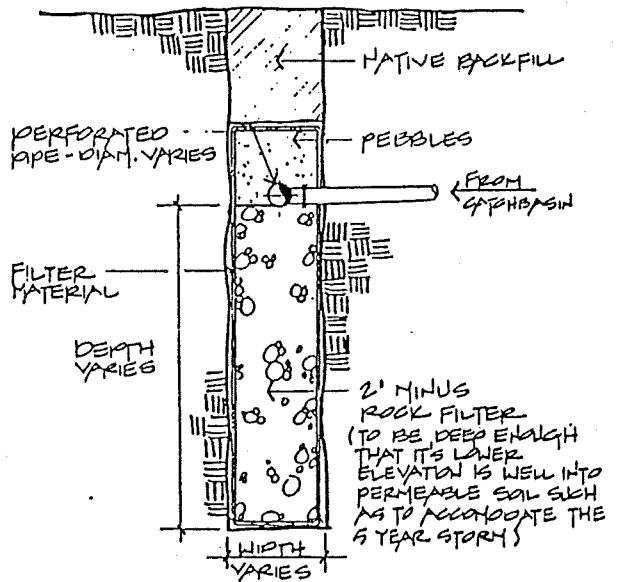 NATIVE BACKFILL
PERFORATED
PIPE-DIAM. VARIES
PEBBLES
FROM
CATCHBASIN
FILTER
MATERIAL
DEPTH
VARIES
2' MINUS
ROCK FILTER
(TO BE DEEP ENOUGH
THAT IT'S LOWER
ELEVATION IS WELL INTO
PERMEABLE SOIL SUCH
AS TO ACCOMODATE THE
5 YEAR STORM)
WIDTH
VARIES